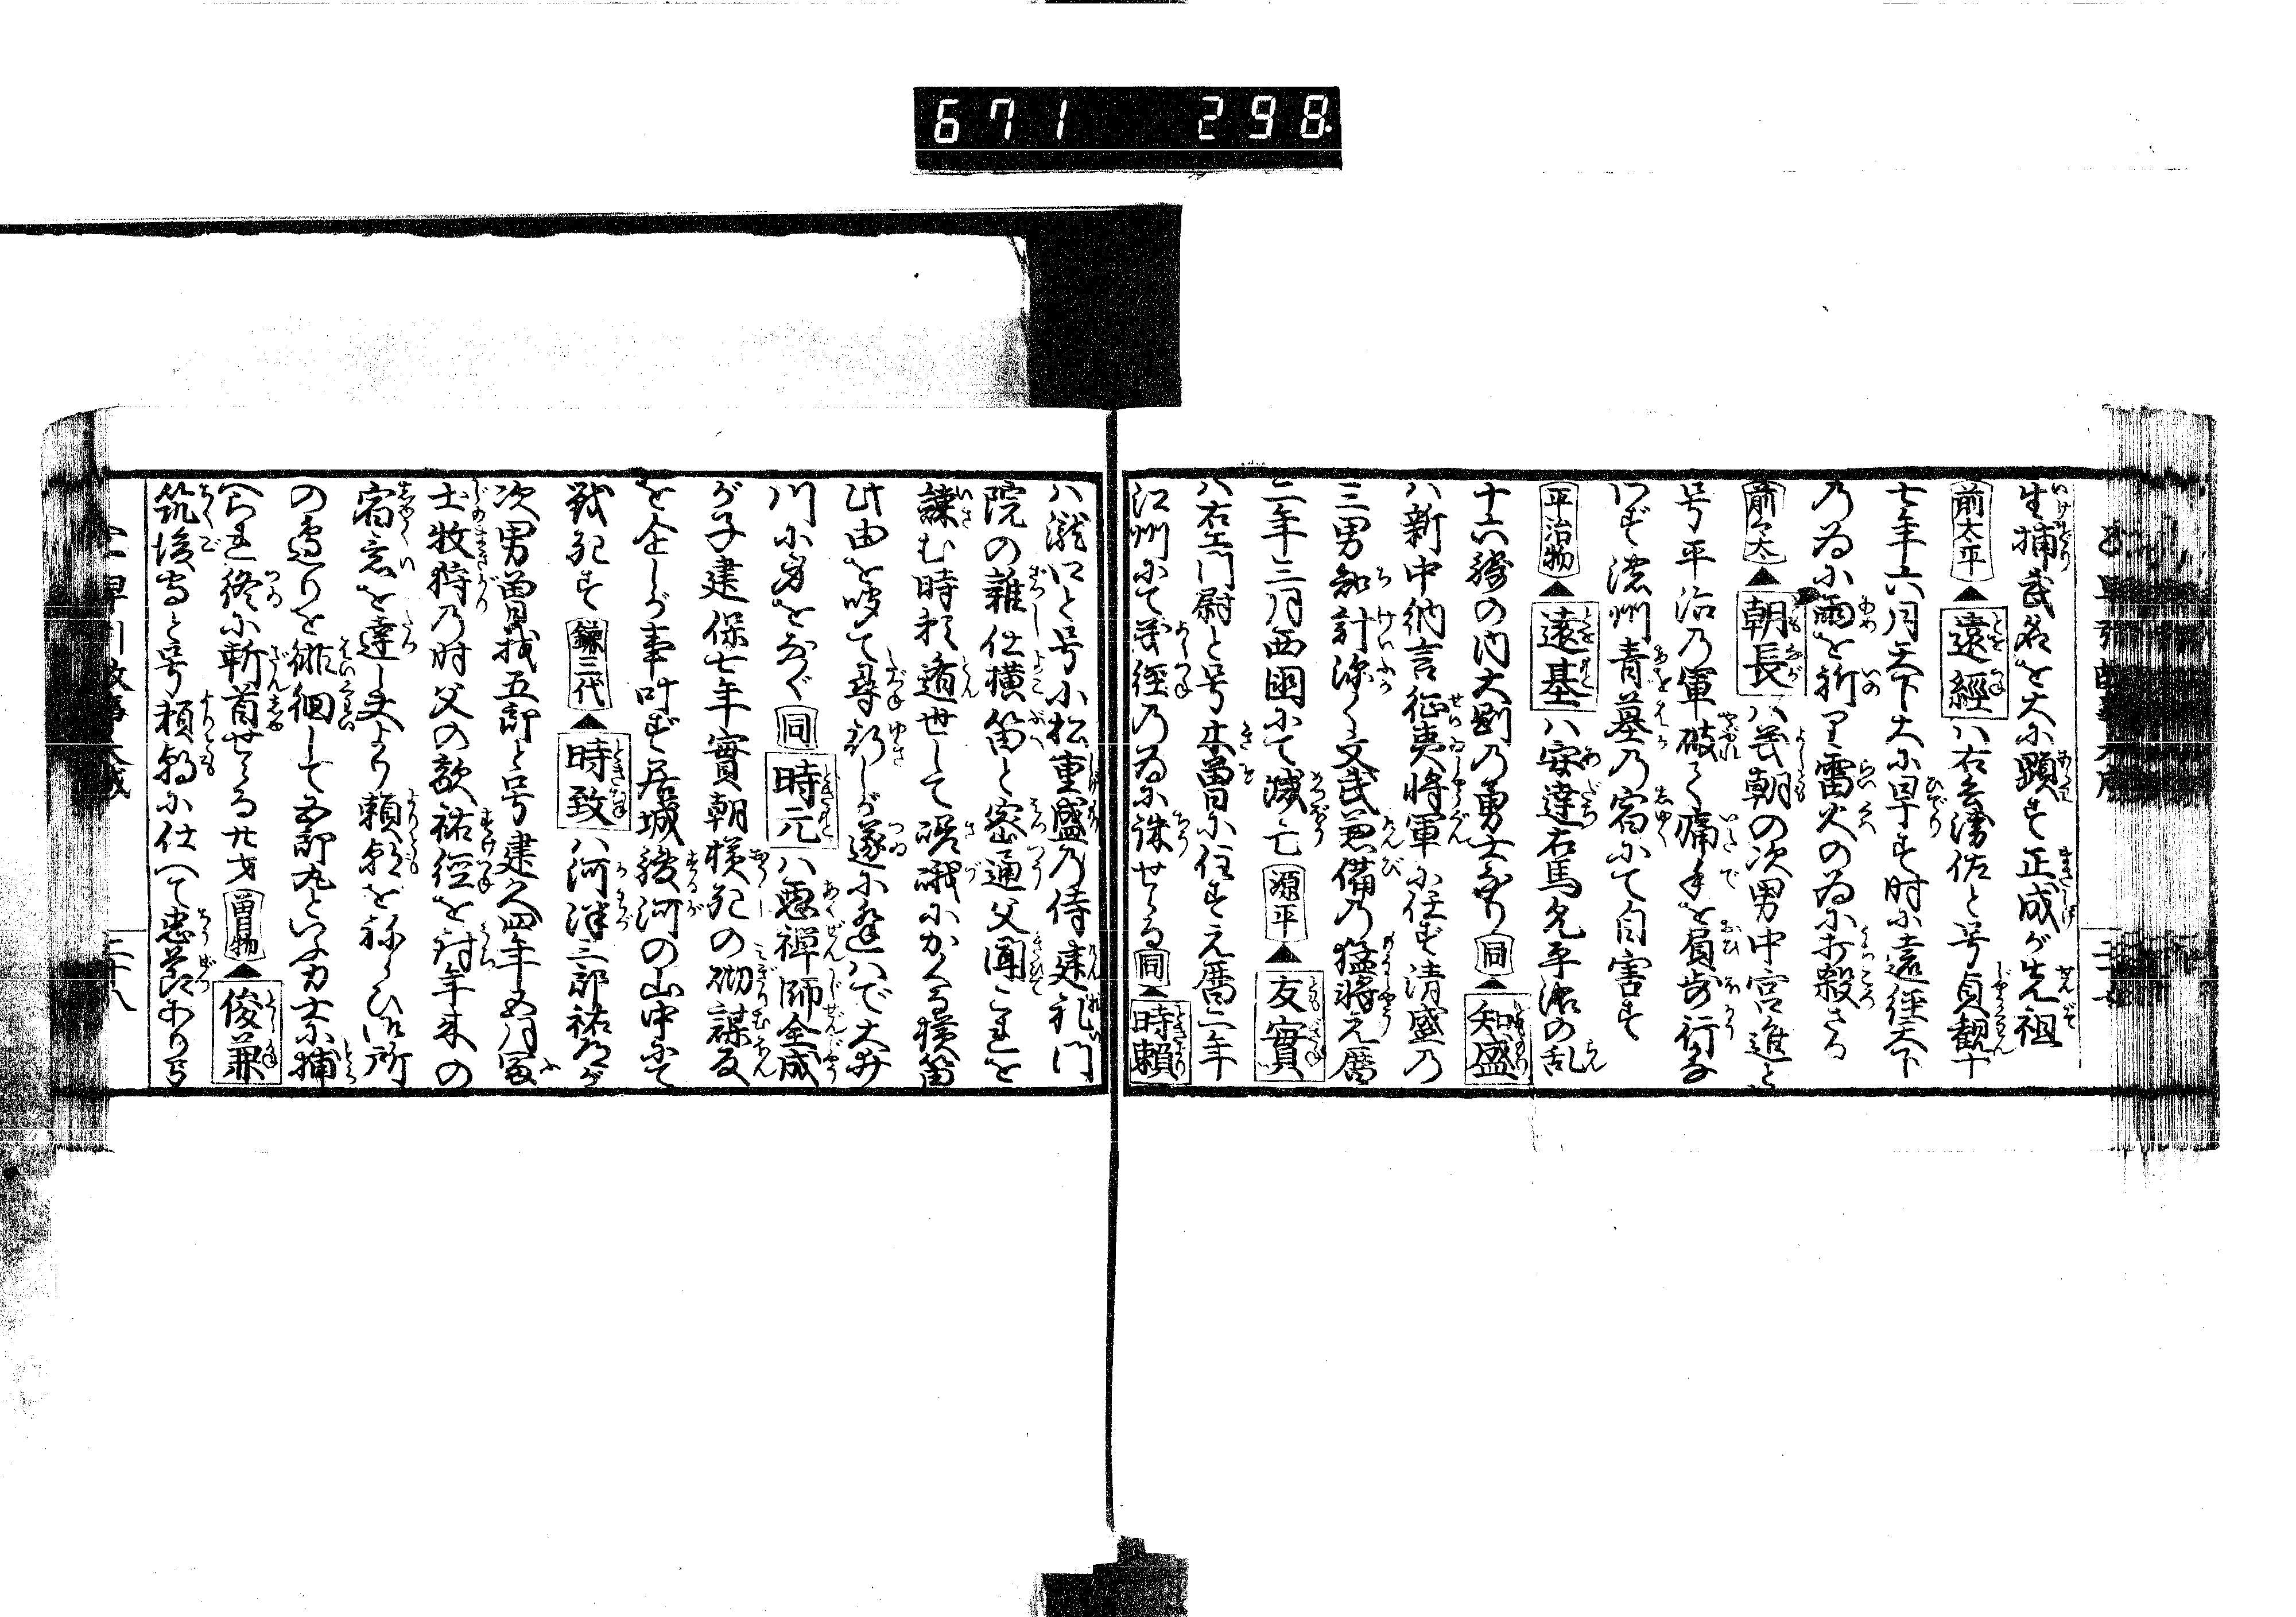 671 298
生捕武名を大に顕す正成が先祖
前太平▲遠經ハ右兵衛佐と号貞観十
七年六月天下大に旱す時に遠経天下
乃為に雨を祈り雷火の為に打殺さる
前々太▲朝長ハ義朝の次男中宮進と
号平治乃軍破て痛手を負歩行な
らず濃州青墓乃宿にて自害す
平治物▲遠基ハ安達右馬允平治の乱
十六騎の内大剛乃勇士なり同▲知盛
ハ新中納言征夷将軍に任ず清盛の
三男知計深く文武兼備乃猛将元暦
二年三月西国にて滅亡源平▲友實
ハ右エ門尉と号木曽に住す元暦二年
江州にて義経乃為に誅せらる同▲時頼
ハ瀧口と号小松重盛乃侍建礼門
院の雑仕横笛と密通父聞これを
諫む時頼遁世して嵯峨にかくる横笛
此由を聞て尋行しが遂に逢ハで大井
川に身をなぐ同時元ハ悪禅師全成
が子建保七年實朝横死の砌謀反
を企しが事叶ず居城駿河の山中にて
戦死す鎌三代▲時致ハ河津三郎祐泰が
次男曽我五郎と号建久四年五月冨
士牧狩乃時父の敵祐経を討年来の
宿意を達し夫より頼朝をねらひ御所
の辺りを徘徊して五郎丸といふ力士に捕
へられ終に斬首せらる廿才曽我物▲俊兼
筑後守と号頼朝に仕へて忠節あり